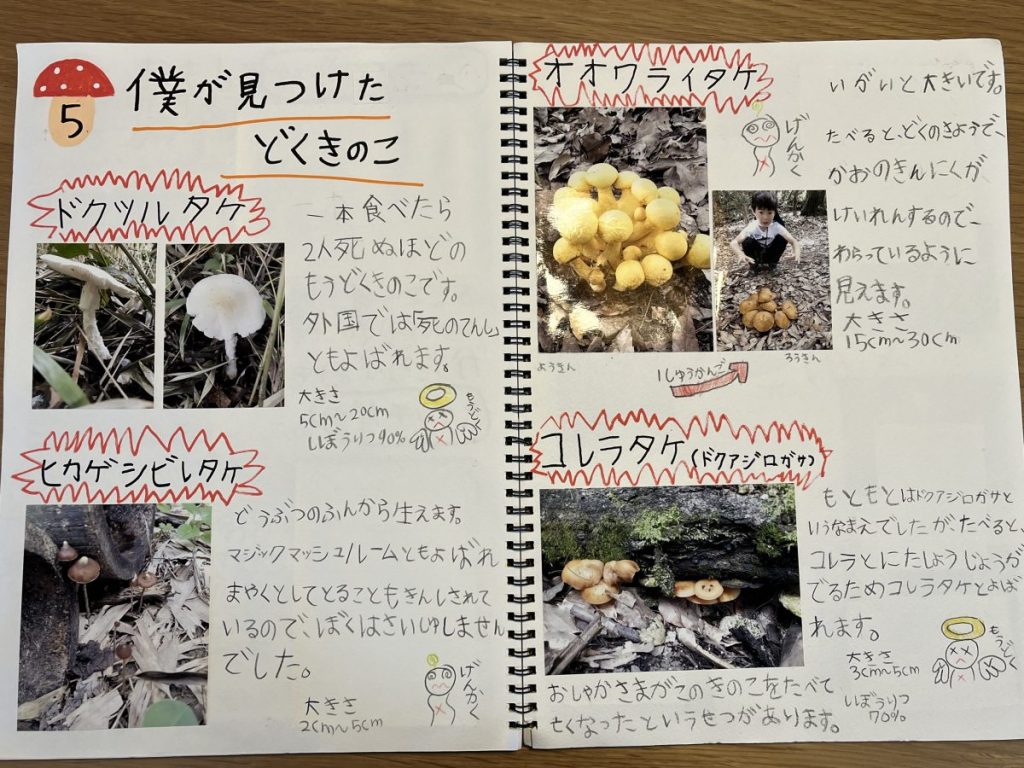 5
僕が見つけた
どくきのこ
ドクツルタケ
一本食べたら
2人死ぬほどの
もうどくきのこです。
外国では「死のてんし」
ともよばれます。
大きさ
5cm〜20cm
しぼうりつ90%
もうどく
ヒカゲシビレタケ
どうぶつのふんから生えます。
マジックマッシュルームともよばれ
まやくとしてとることもきんしされて
いるので、ぼくはさいしゅしません
でした。
大きさ
2cm〜5cm
げんかく
オオワライタケ
げんかく
いがいと大きいです。
たべると、どくのさようで、
かおのきんにくが
けいれんするので、
わらっているように
見えます。
大きさ
15cm〜30cm
ようきん
1しゅうかんご
ろうきん
コレラタケ(ドクアジロガサ)
もともとはドクアジロガサと
いうなまえでしたがたべると、
コレラとにたしょうじょうが
でるためコレラタケとよば
れます。
大きさ
3cm〜5cm
しぼうりつ
70%
もうどく
おしゃかさまがこのきのこをたべて
亡くなったというせつがあります。